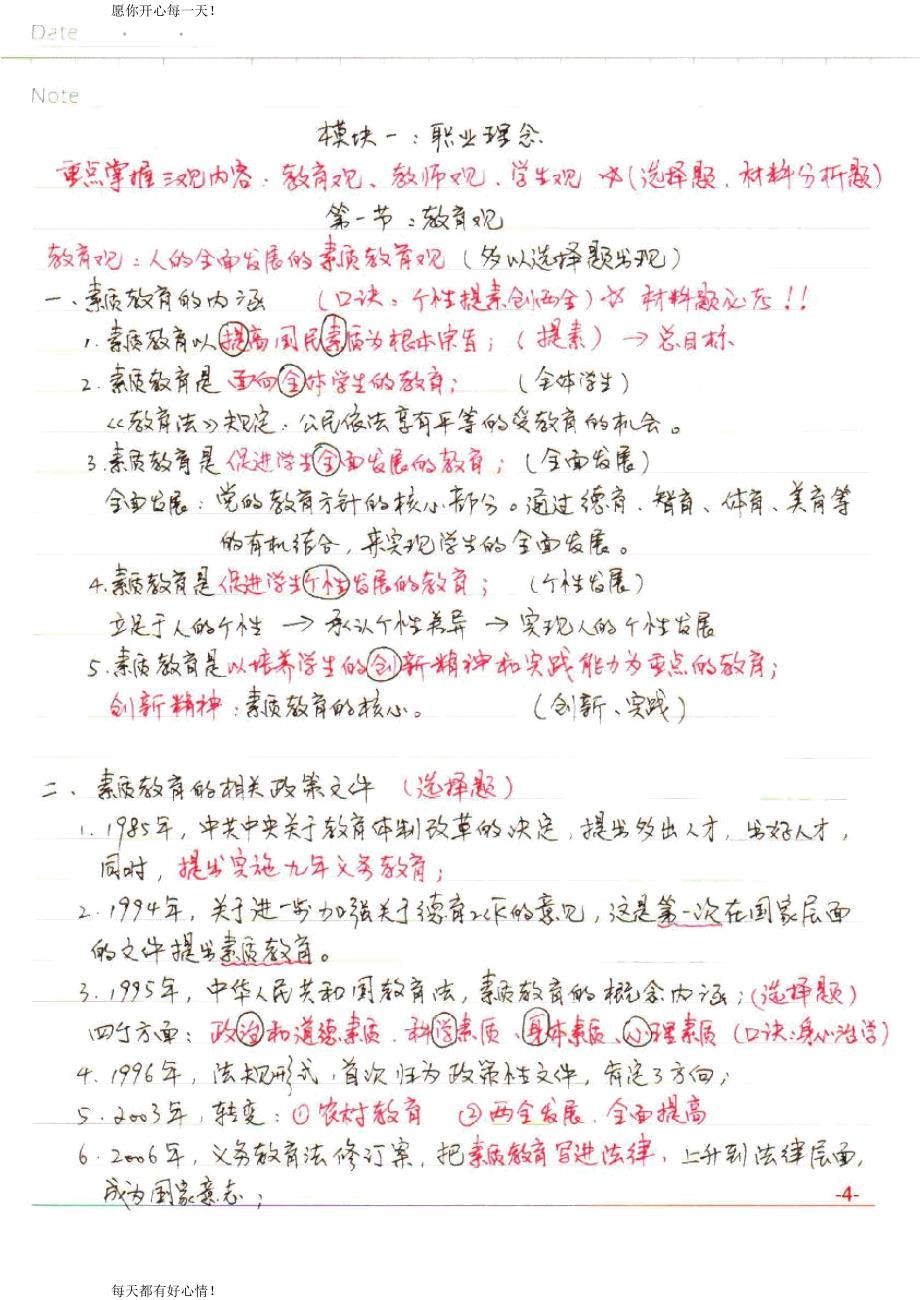 愿你开心每一天！
Date
Note
模块一：职业理念
重点掌握三观内容：教育观、教师观、学生观 ☆(选择题、材料分析题)
第一节：教育观
教育观：人的全面发展的素质教育观（多以选择题出现）
一、素质教育的内涵 （口诀：个性提素创两全）☆ 材料题必考！！
1. 素质教育以提高国民素质为根本宗旨；（提素）→ 总目标
2. 素质教育是面向全体学生的教育； （全体学生）
《教育法》规定：公民依法享有平等的受教育的机会。
3. 素质教育是促进学生全面发展的教育；（全面发展）
全面发展：党的教育方针的核心部分。通过德育、智育、体育、美育等
的有机结合，来实现学生的全面发展。
4. 素质教育是促进学生个性发展的教育； （个性发展）
立足于人的个性 → 承认个性差异 → 实现人的个性发展
5. 素质教育是以培养学生的创新精神和实践能力为重点的教育；
创新精神：素质教育的核心。 （创新、实践）
二、素质教育的相关政策文件 （选择题）
1. 1985年，中共中央关于教育体制改革的决定，提出多出人才，出好人才，
同时，提出实施九年义务教育；
2. 1994年，关于进一步加强关于德育工作的意见，这是第一次在国家层面
的文件提出素质教育。
3. 1995年，中华人民共和国教育法，素质教育的概念内涵；(选择题)
四个方面：政治和道德素质、科学素质、身体素质、心理素质（口诀：身心治学）
4. 1996年，法规形式，首次归为政策性文件，肯定了方向；
5. 2003年，转变：① 农村教育 ② 两全发展、全面提高
6. 2006年，义务教育法修订案，把素质教育写进法律，上升到法律层面，
成为国家意志；
-4-
每天都有好心情！